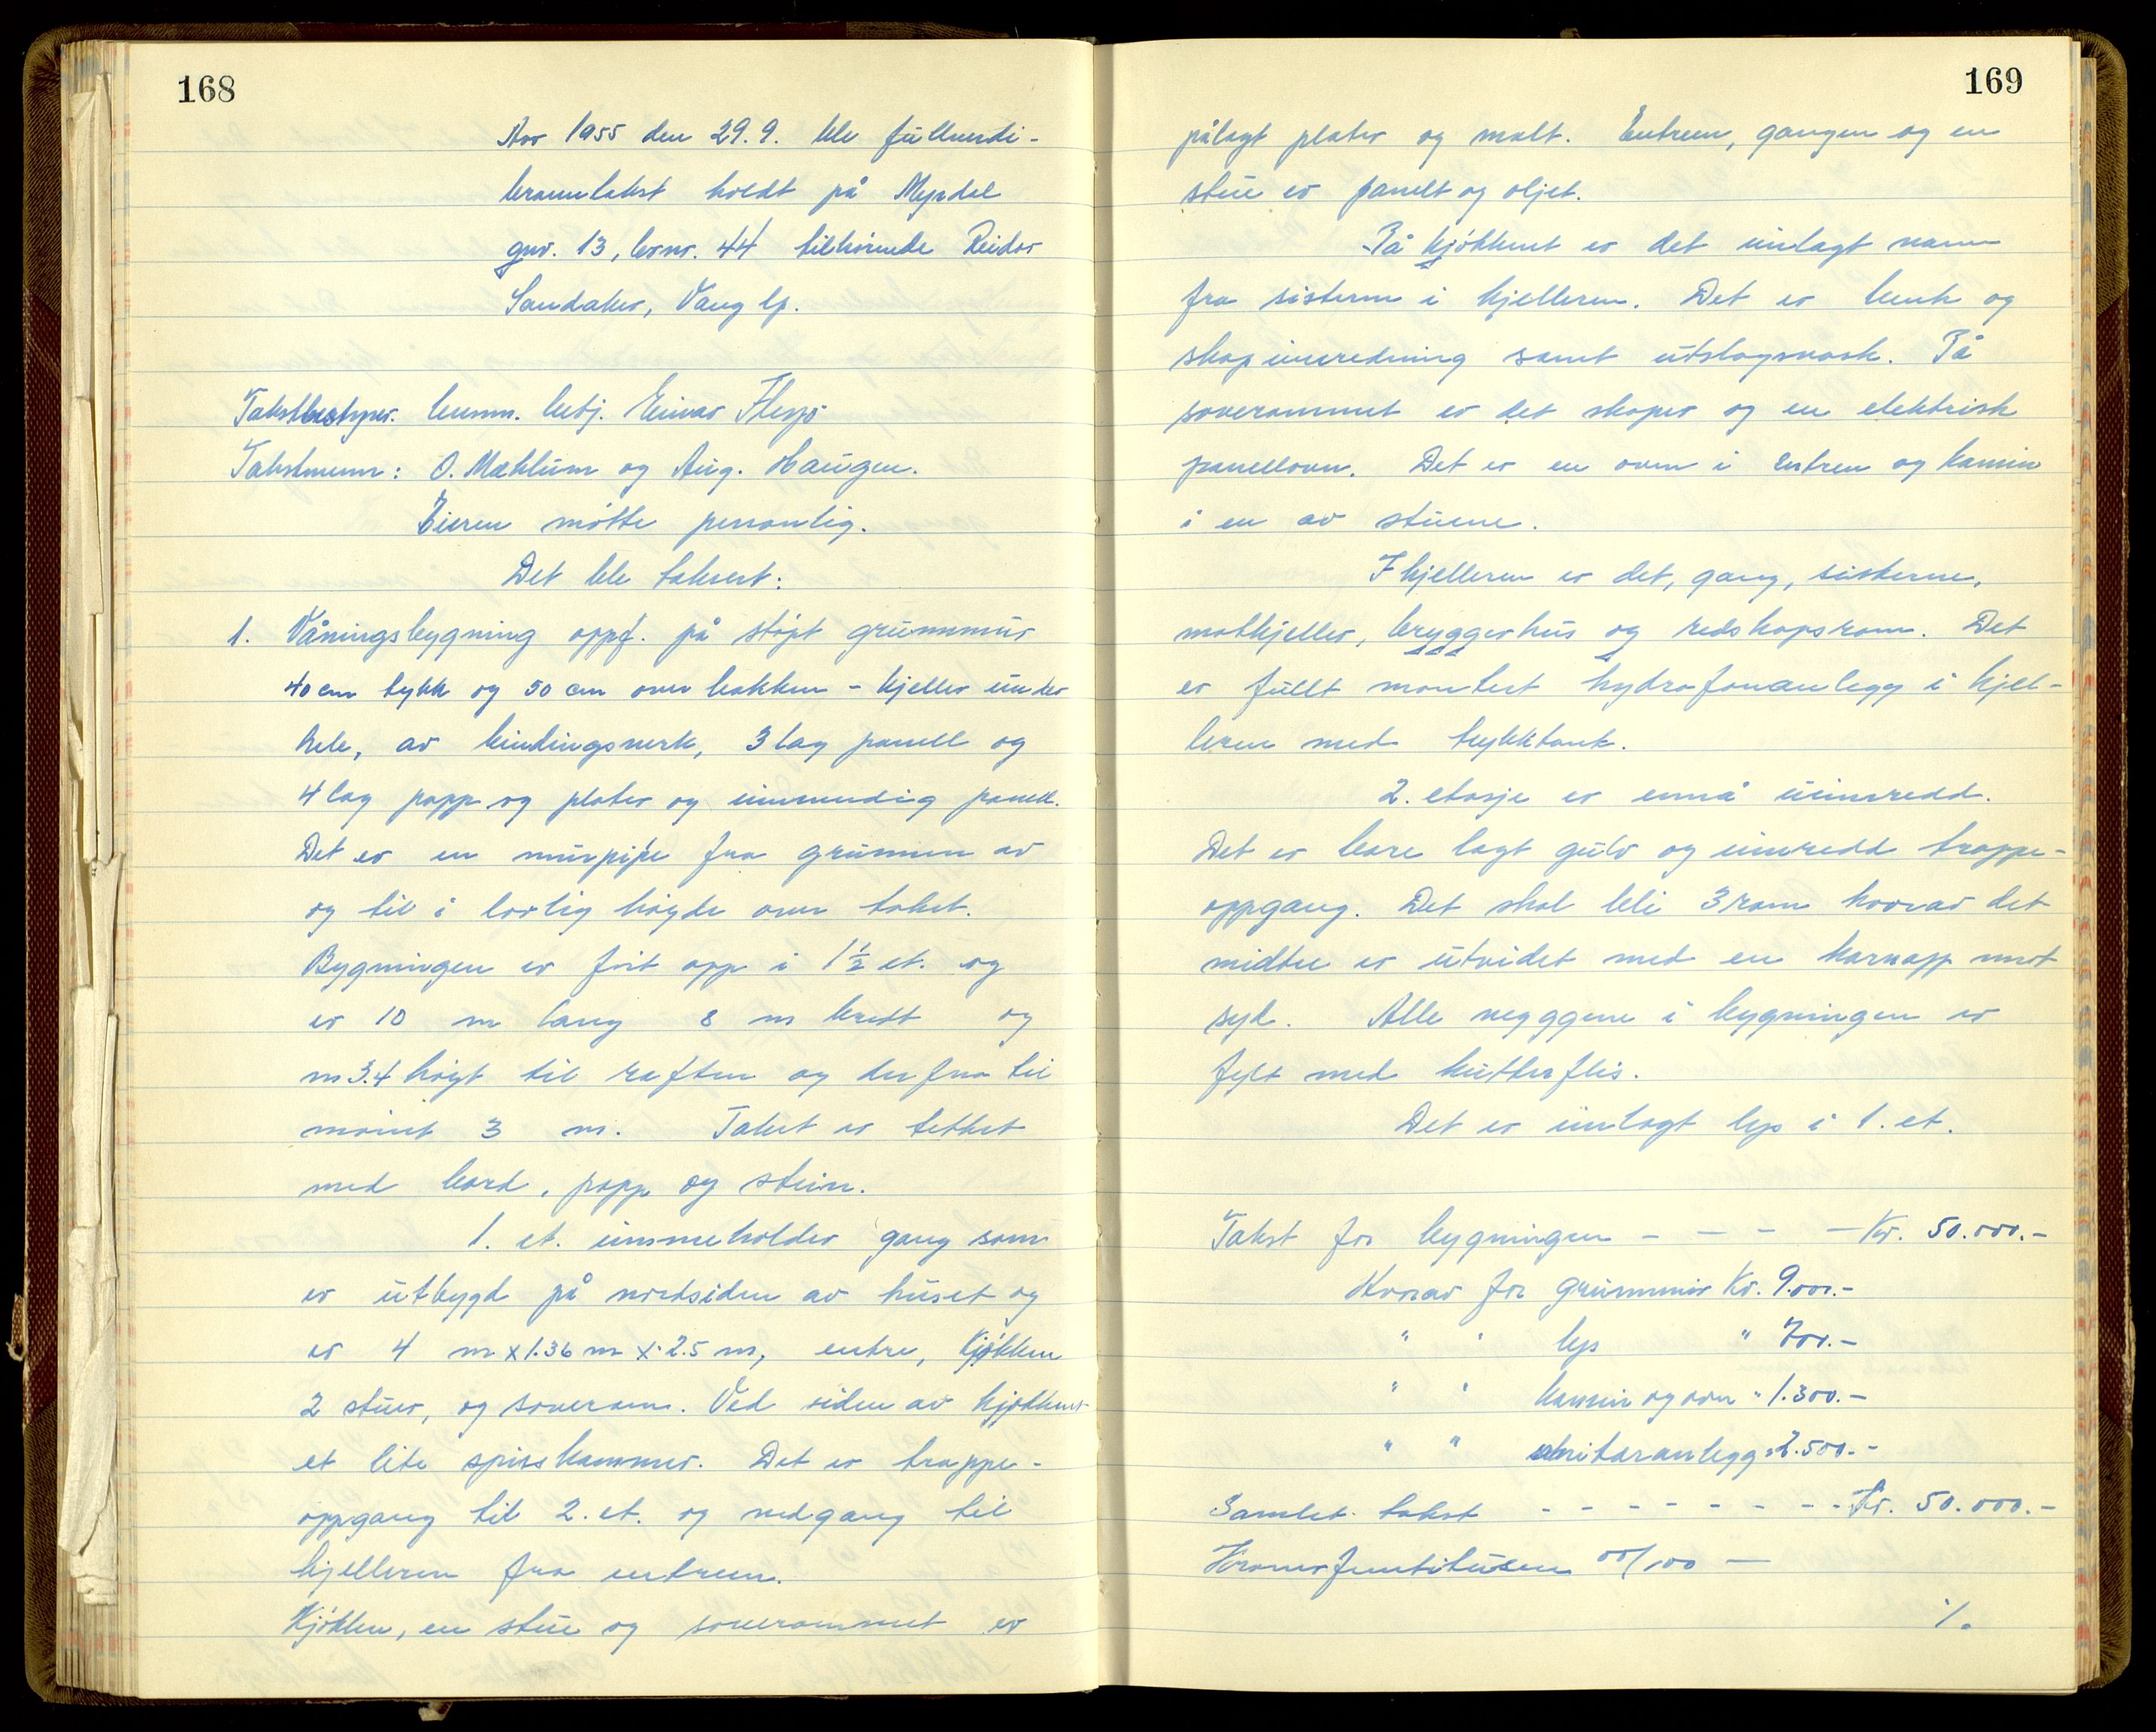 168
Aar 1955 den 29.9. ble fullverdi-
branntakst holdt på Myrdal
gnr. 13, brnr. 44 tilhørende Reidar
Sandaker, Vang lp.
Takstbestyrer. brann. betj. Einar Flesjø
Takstmenn: O. Mæhlum og Aug. Haugen.
Eieren møtte personlig.
Det ble taksert:
1. Våningsbygning oppf. på støpt grunnmur
40 cm tykk og 50 cm over bakken - kjeller under
hele, av bindingsverk, 3 lag panell og
4 lag papp og plater og innvendig panell.
Det er en murpipe fra grunnen av
og til i lovlig høyde over taket.
Bygningen er ført opp i 1½ et. og
er 10 m lang 8 m bredt og
m 3.4 høyt til raften og derfra til
mønet 3 m. Taket er tekket
med bord, papp og stein.
1. et. inneholder gang som
er utbygd på nordsiden av huset og
er 4 m x 1.36 m x 2.5 m, entre, kjøkken
2 stuer, og soverom. Ved siden av kjøkkenet
et lite spisskammer. Det er trappe-
oppgang til 2. et. og nedgang til
kjelleren fra entreen.
Kjøkken, en stue og soverommet er
169
pålagt plater og malt. Entreen, gangen og en
stue er panelt og oljet.
På kjøkkenet er det innlagt vann
fra sisterne i kjelleren. Det er benk og
skap innredning samt utslagsvask. På
soverommet er det skaper og en elektrisk
panellovn. Det er en ovn i Entreen og kamin
i en av stuene.
I kjelleren er det, gang, sisterne,
matkjeller, bryggerhus og redskapsrom. Det
er fullt montert hydrofonanlegg i kjel-
leren med trykktank.
2. etasje er ennå uinnredd.
Det er bare lagt gulv og innredd trappe-
oppgang. Det skal bli 3 rom hvorav det
midtre er utvidet med en karnapp mot
syd. Alle vegggene i bygningen er
fylt med kutterflis.
Det er innlagt lys i 1. et.
Takst for bygningen - - - - Kr. 50.000.-
Hvorav for grunnmur Kr. 9.000.-
" " lys " 700.-
" " kamin og ovn " 1.300.-
" " sanitæranlegg " 2.500.-
Samlet takst - - - - - - - - - Kr. 50.000.-
Kroner femtitusen 00/100 —
·/.